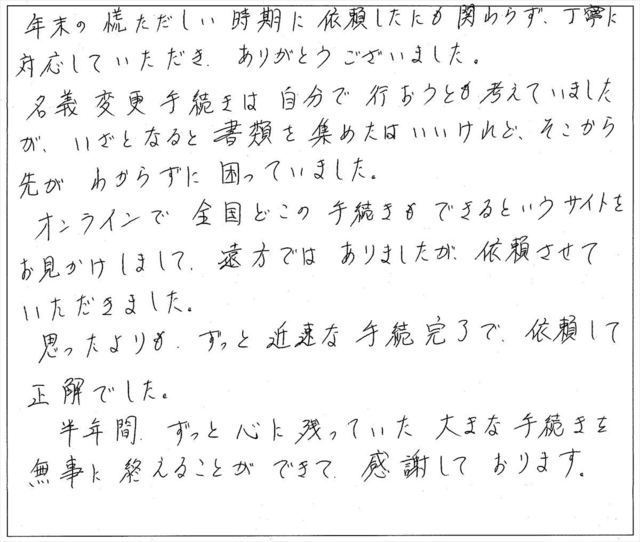 年末の慌ただしい時期に依頼したにも関わらず、丁寧に
対応していただき、ありがとうございました。
名義変更手続きは自分で行おうとも考えていました
が、いざとなると書類を集めたはいいけれど、そこから
先がわからずに困っていました。
オンラインで全国どこの手続きもできるというサイトを
お見かけしまして、遠方ではありましたが、依頼させて
いただきました。
思ったよりも、ずっと迅速な手続完了で、依頼して
正解でした。
半年間、ずっと心に残っていた大きな手続きを
無事に終えることができて、感謝しております。